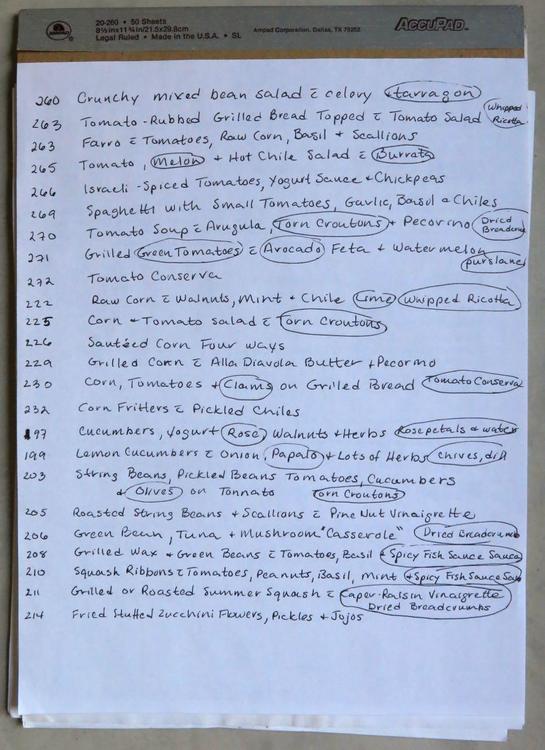 20-260 • 50 Sheets
8½inx11¾in/21.5x29.8cm
Legal Ruled • Made in the U.S.A. • SL
Ampad Corporation, Dallas, TX 75252
ACCUPAD
AMPAD
260 Crunchy mixed bean salad c̄ celory + tarragon
263 Tomato-Rubbed Grilled Bread Topped c̄ Tomato Salad Whipped Ricotta
263 Farro c̄ Tomatoes, Raw Corn, Basil + Scallions
265 Tomato, Melon + Hot Chile Salad c̄ Burrata
266 Israeli-Spiced Tomatoes, Yogurt Sauce + Chickpeas
269 Spaghetti with Small Tomatoes, Garlic, Basil + Chiles
270 Tomato Soup c̄ Arugula, Torn Croutons + Pecorino Dried Breadcrumb
271 Grilled Green Tomatoes c̄ Avocado Feta + Watermelon
purslane
272 Tomato Conserva
222 Raw Corn c̄ Walnuts, Mint + Chile Lime Whipped Ricotta
225 Corn + Tomato Salad c̄ Torn Croutons
226 Sautéed Corn Four Ways
229 Grilled Corn c̄ Alla Diavola Butter + Pecorino
230 Corn, Tomatoes + Clams on Grilled Bread Tomato Conserva
232 Corn Fritters c̄ Pickled Chiles
197 Cucumbers, Yogurt Rose, Walnuts + Herbs Rose petals + water
199 Lemon Cucumbers c̄ Onion, Papalo + Lots of Herbs chives, dill
203 String Beans, Pickled Beans Tomatoes, Cucumbers
+ Olives on Tonnato Torn Croutons
205 Roasted String Beans + Scallions c̄ Pine Nut Vinaigrette
206 Green Bean, Tuna + Mushroom "Casserole" Dried Breadcrumb
208 Grilled Wax + Green Beans c̄ Tomatoes, Basil + Spicy Fish Sauce Sauce
210 Squash Ribbons c̄ Tomatoes, Peanuts, Basil, Mint + Spicy Fish Sauce Sau
211 Grilled or Roasted Summer Squash c̄ Caper-Raisin Vinaigrette
Dried Breadcrumbs
214 Fried Stuffed Zucchini Flowers, Pickles + Jojos